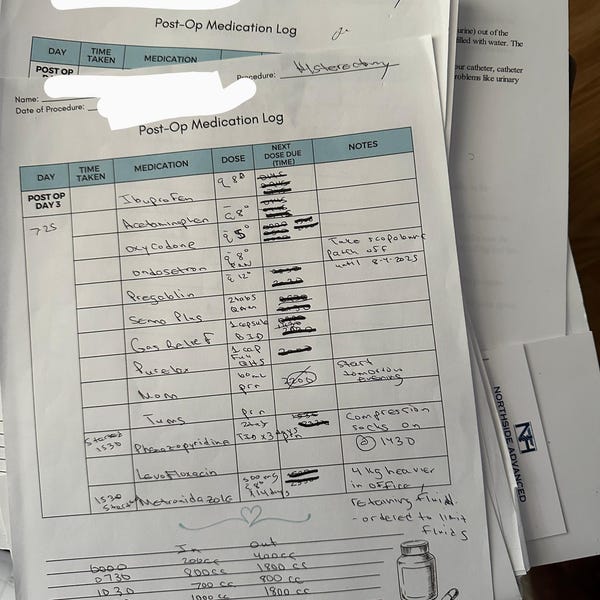 Post-Op Medication Log
urine) out of the
filled with water. The
DAY TIME TAKEN MEDICATION
POST OP
our catheter, catheter
problems like urinary
Procedure: Hsterectomy
Name:
Date of Procedure:
Post-Op Medication Log
DAY TIME TAKEN MEDICATION DOSE NEXT DOSE DUE (TIME) NOTES
POST OP DAY 3
725
Ibuprofen q 8°
Acetominophen q 8°
oxycodone q 5° Take scopolamine patch off until 8-4-2025
ondosetron q 8° prn
Pregablin q 12°
Senna Plus 2 tabs
Gas Relief 1 capsule BID
Puralax 1 cap QHS
Mom 60mL prn 2200 Start tomorrow evening
Tums prn
Started 1530 Phenazopyridine TID x 3 days prn Compression socks on @ 1430
Levofloxacin 500 mg
1530 Start Metronidazole q 8° x 14 days 4 kg heavier in office /
retaining fluid.
- ordered to limit
fluids
In Out
0000 200cc 400cc
0730 800cc 1800 cc
1030 700 cc 800 cc
1000 cc 1800 cc
NORTHSIDE ADVANCED